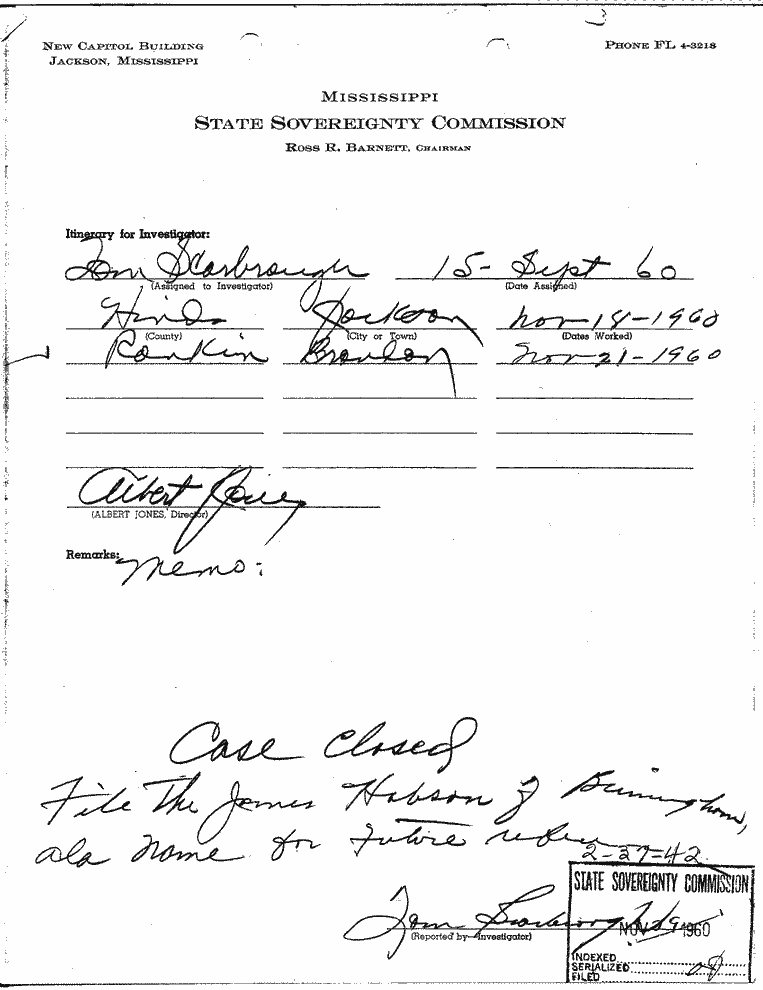 3
NEW CAPITOL BUILDING PHONE FL 4-3218
JACKSON, MISSISSIPPI
MISSISSIPPI
STATE SOVEREIGNTY COMMISSION
ROSS R. BARNETT, CHAIRMAN
Itinerary for Investigator:
Tom Scarbrough 15- Sept 60
(Assigned to Investigator) (Date Assigned)
Hinds Jackson Nov-18-1960
(County) (City or Town) (Dates Worked)
Rankin Brandon Nov-21-1960
Albert Jones
(ALBERT JONES, Director)
Remarks:
Memo:
Case Closed
File The James Hobson of Birmingham,
ala name for future
2-37-42
STATE SOVEREIGNTY COMMISSION
Tom Scarbrough NOV 29 1960
(Reported by Investigator)
INDEXED
SERIALIZED
FILED